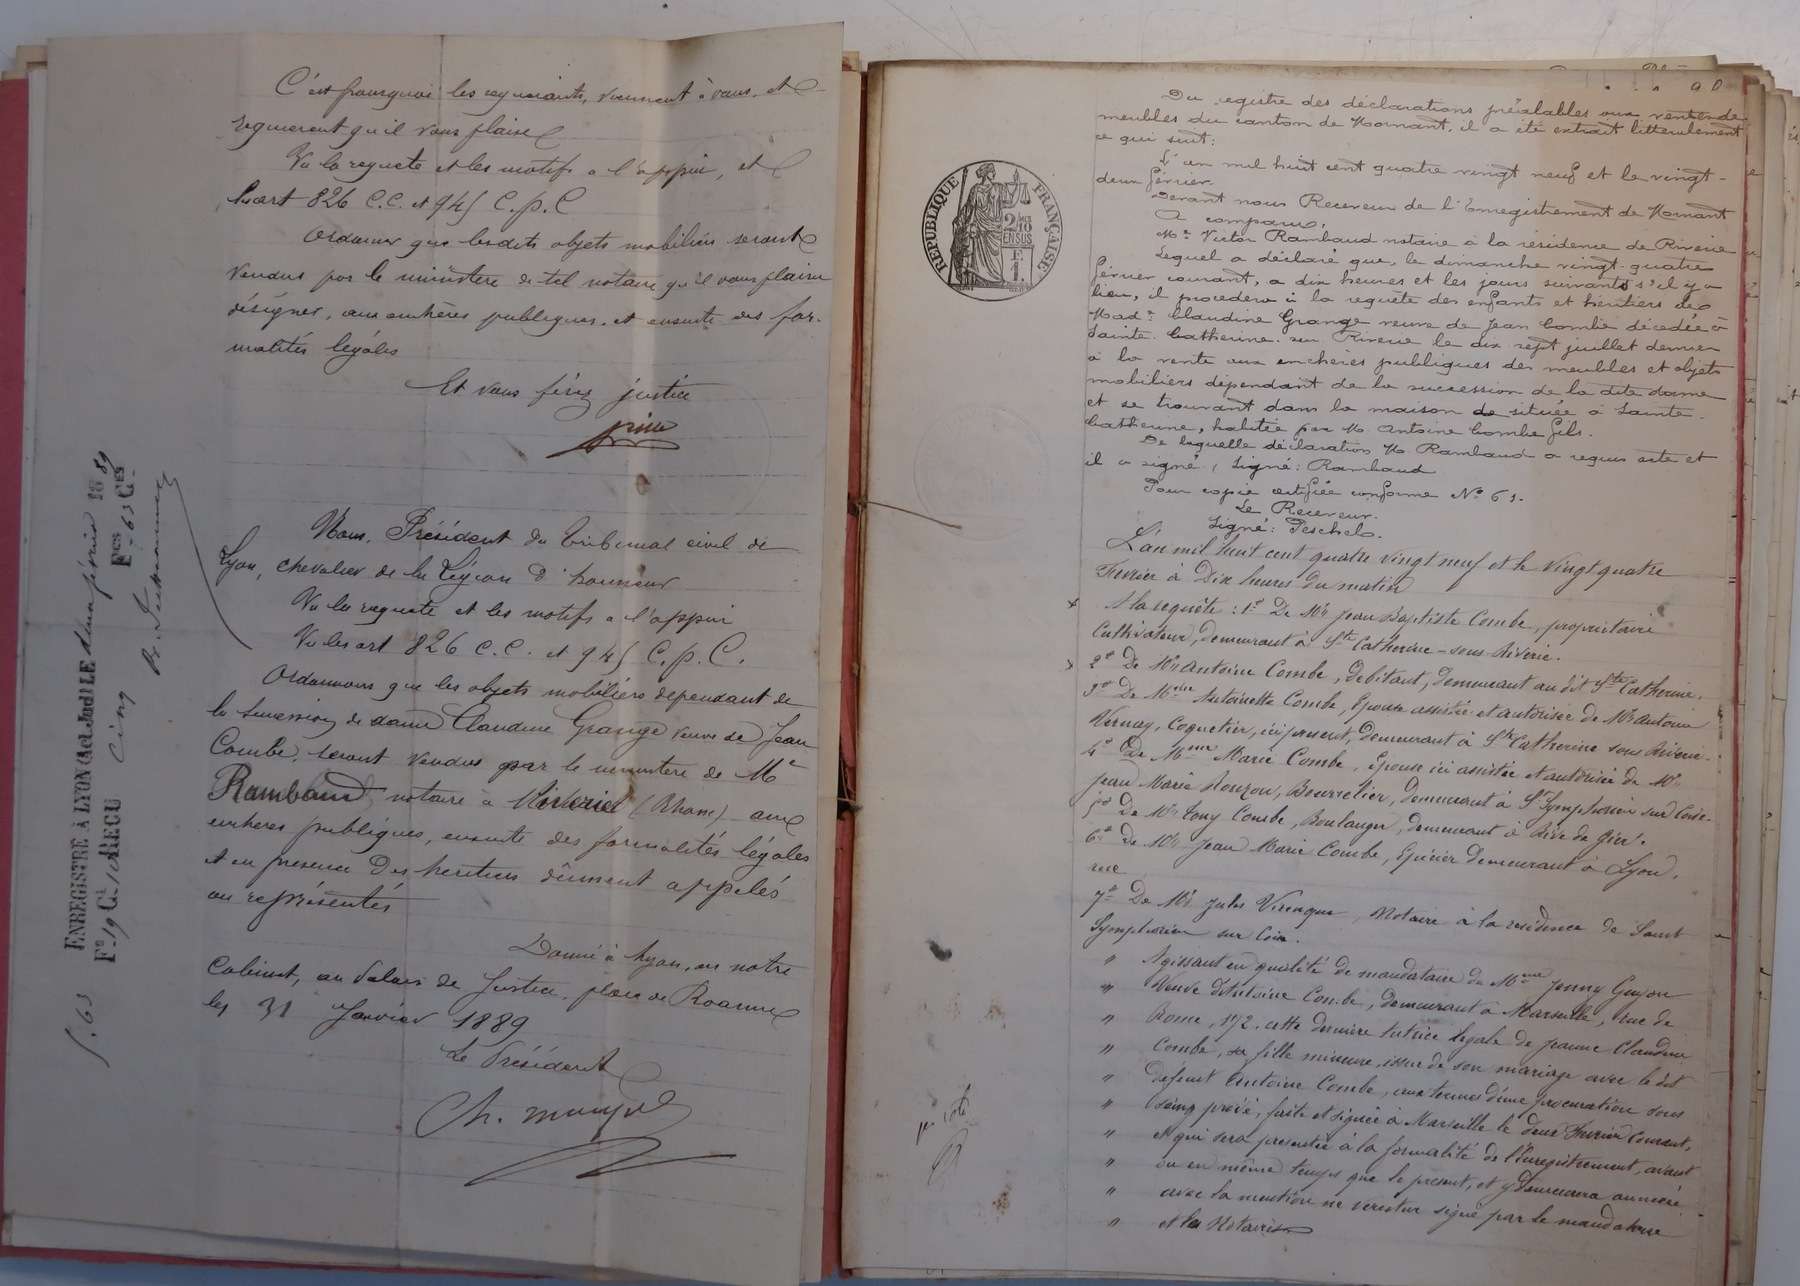 C'est pourquoi les requérants, viennent à vous, et
requierent qu'il vous plaise
Vu la requete et les motifs a l'appui, et
les art 826 C.C. et 945 C.p.C
Ordonner que lesdits objets mobiliers seront
vendus par le ministere de tel notaire qu'il vous plaira
désigner, aux enchères publiques, et ensuite des for-
malités légales
Et vous ferez justice
Nous, Président du tribunal civil de
Lyon, chevalier de la Légion d'honneur
Vu la requete et les motifs a l'appui
Vu les art 826 C.C. et 945 C.p.C.
Ordonnons que les objets mobiliers dependant de
la succession de dame Claudine Grange veuve de Jean
Combe, seront vendus par le ministere de Me
Rambaud, notaire à Riverie (Rhône) aux
enchères publiques, ensuite des formalités légales
et en presence des heritiers dûment appelés
ou représentés
Donné à Lyon, en notre
Cabinet, au Palais de Justice, place de Roanne
les 31 Janvier 1889
Le Président
ENREGISTRÉ À LYON (Act. Jud.) LE deux février 1889
Fo 19 Ce 10 REÇU cinq Fcs - 63 Ces
5.63
RÉPUBLIQUE FRANÇAISE
2 DES 10 EN SUS
1 F.
Du registre des déclarations préalables aux ventes de
meubles du canton de Mornant, il a été extrait littéralement
ce qui suit:
L'an mil huit cent quatre vingt neuf et le vingt-
deux février.
Devant nous Receveur de l'Enregistrement de Mornant
A comparu,
Me Victor Rambaud notaire à la résidence de Riverie
Lequel a déclaré que, le dimanche vingt-quatre
février courant, a dix heures et les jours suivants s'il y a
lieu, il procédera à la requête des enfants et héritiers de
Made Claudine Grange veuve de Jean Combe décédée à
Sainte-Catherine-sur-Riverie le dix sept juillet dernier
à la vente aux enchères publiques des meubles et objets
mobiliers dépendant de la succession de la dite dame
et se trouvant dans la maison de située à Sainte-
Catherine, habitée par M Antoine Combe fils.
De laquelle déclaration Me Rambaud a requis acte et
il a signé, Signé: Rambaud
Pour copie certifiée conforme No 61.
Le Receveur.
Signé: Peschel.
L'an mil huit cent quatre vingt neuf et le vingt quatre
Fevrier à Dix heures du matin
x A la requête: 1o De Mr Jean Baptiste Combe, propriétaire
Cultivateur, demeurant à Ste Catherine-sous-Riverie.
x 2o De Mr Antoine Combe, debitant, demeurant au dit Ste Catherine.
3o De Mme Antoinette Combe, Epouse assistée et autorisée de Mr Antoine
Vernay, Coquetier, ici présent, demeurant à Ste Catherine sous Riverie.
4o De Mme Marie Combe, Epouse ici assistée et autorisée de Mr
Jean Marie Ronzon, Bourrelier, demeurant à St Symphorien sur Coise.
5o De Mr Tony Combe, Boulanger, demeurant à Rive de Gier.
6o de Mr Jean Marie Combe, Epicier demeurant à Lyon,
rue
7o De Mr Jules Viringue, Notaire à la residence de Saint
Symphorien sur Coise.
" Agissant en qualité de mandataire de Mme Jenny Guyon
" Veuve d'Antoine Combe, demeurant à Marseille, rue de
" Rome, 172, cette dernière tutrice légale de Jeanne Claudine
" Combe, sa fille mineure, issue de son mariage avec le dit
" defunt Antoine Combe, aux termes d'une procuration sous
" seing privé, faite et signée à Marseille le deux Fevrier courant,
" et qui sera presentée à la formalité de l'Enregistrement, avant
" ou en même temps que le present, et y demeurera annexée
" avec la mention ne varietur signé par le mandataire
" et les Notaires